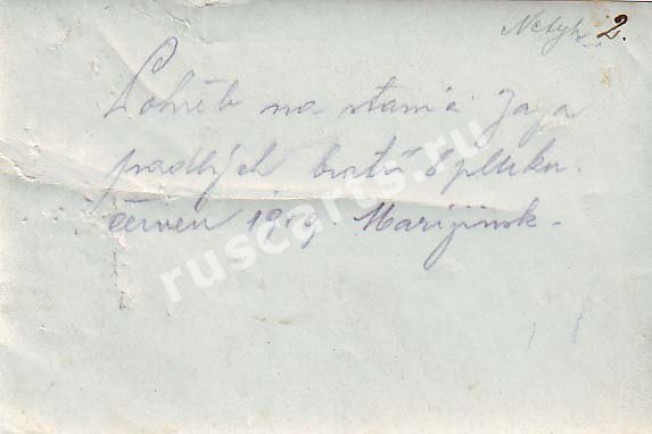 2.
Pohřeb na stanici Jaja
padlých bratrů 8 pluku.
červen 1919. Mariijinsk.
ruscarts.ru